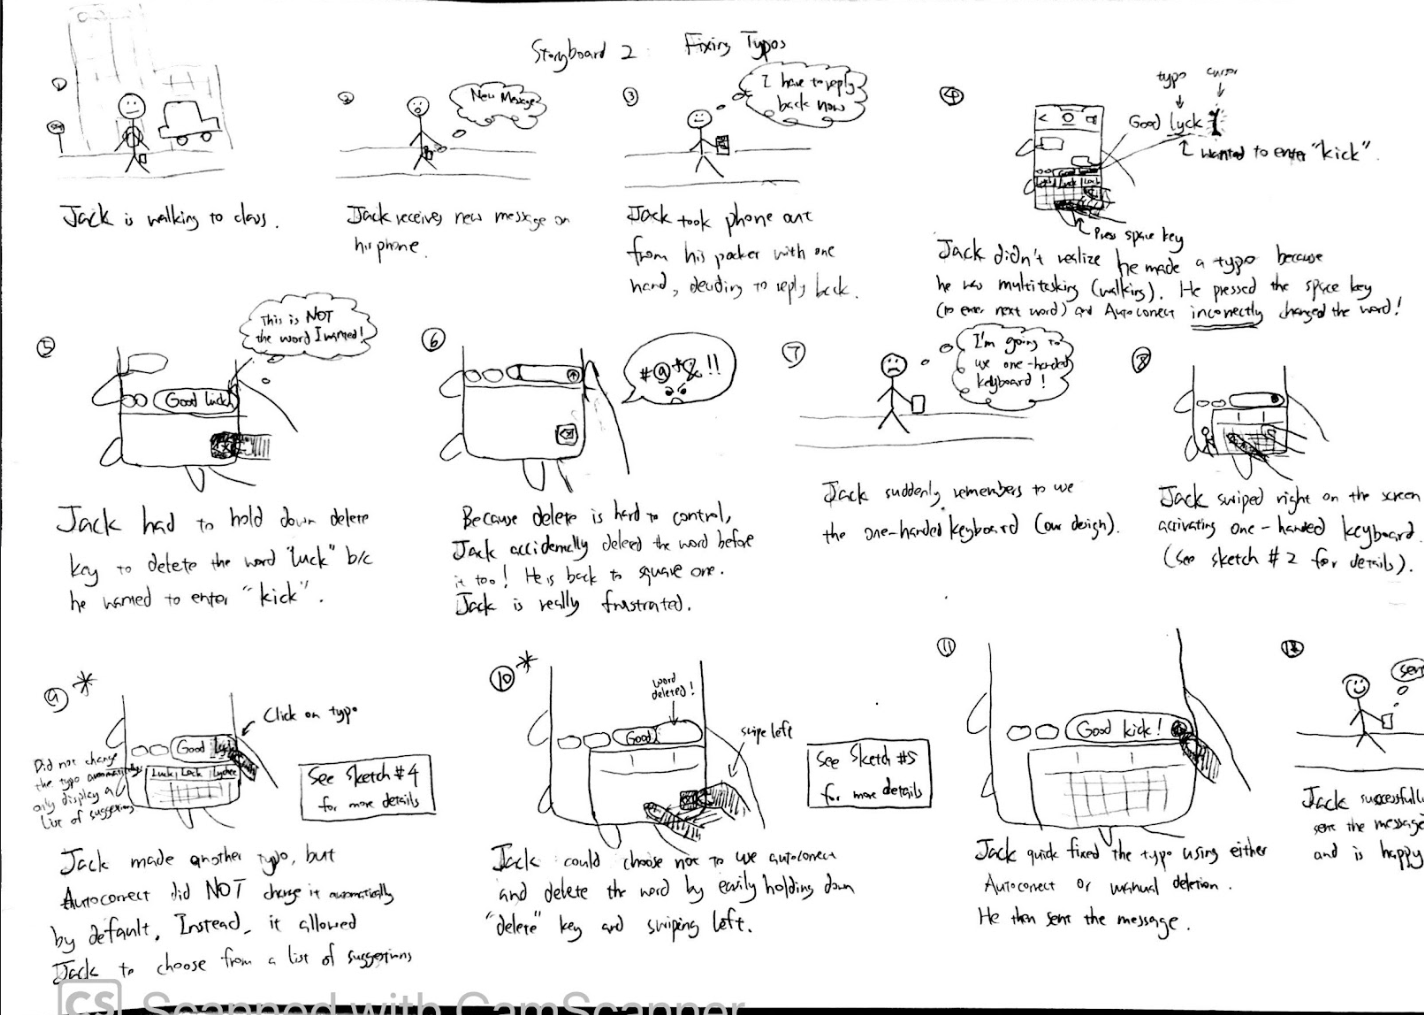 Storyboard 2: Fixing Typos
①
Jack is walking to class.
②
New Message
Jack receives new message on
his phone.
③
I have to reply
back now
Jack took phone out
from his pocket with one
hand, deciding to reply back.
④
typo
cursor
Good lyck
wanted to enter "kick".
Press space key
Jack didn't realize he made a typo because
he was multitasking (walking). He pressed the space key
(to enter next word) and Autocorrect incorrectly changed the word!
⑤
This is NOT
the word I wanted!
Good luck
Jack had to hold down delete
key to delete the word "luck" b/c
he wanted to enter "kick".
⑥
#@*&!!
Because delete is hard to control,
Jack accidentally deleted the word before
it too! He is back to square one.
Jack is really frustrated.
⑦
I'm going to
use one-handed
keyboard!
Jack suddenly remembers to use
the one-handed keyboard (our design).
⑧
Jack swiped right on the screen
activating one-handed keyboard.
(see sketch #2 for details).
⑨*
Click on typo
Good lyck
Luck Lack
Did not change
the typo automatically,
only display a
list of suggestions
See Sketch #4
for more details
Jack made another typo, but
Autocorrect did NOT change it automatically
by default. Instead, it allowed
Jack to choose from a list of suggestions
⑩*
word
deleted!
Good
swipe left
See Sketch #5
for more details
Jack could choose not to use autocorrect
and delete the word by easily holding down
"delete" key and swiping left.
⑪
Good kick!
Jack quick fixed the typo using either
Autocorrect or manual deletion.
He then sent the message.
⑫
sent
Jack successfully
sent the message
and is happy
CS Scanned with CamScanner